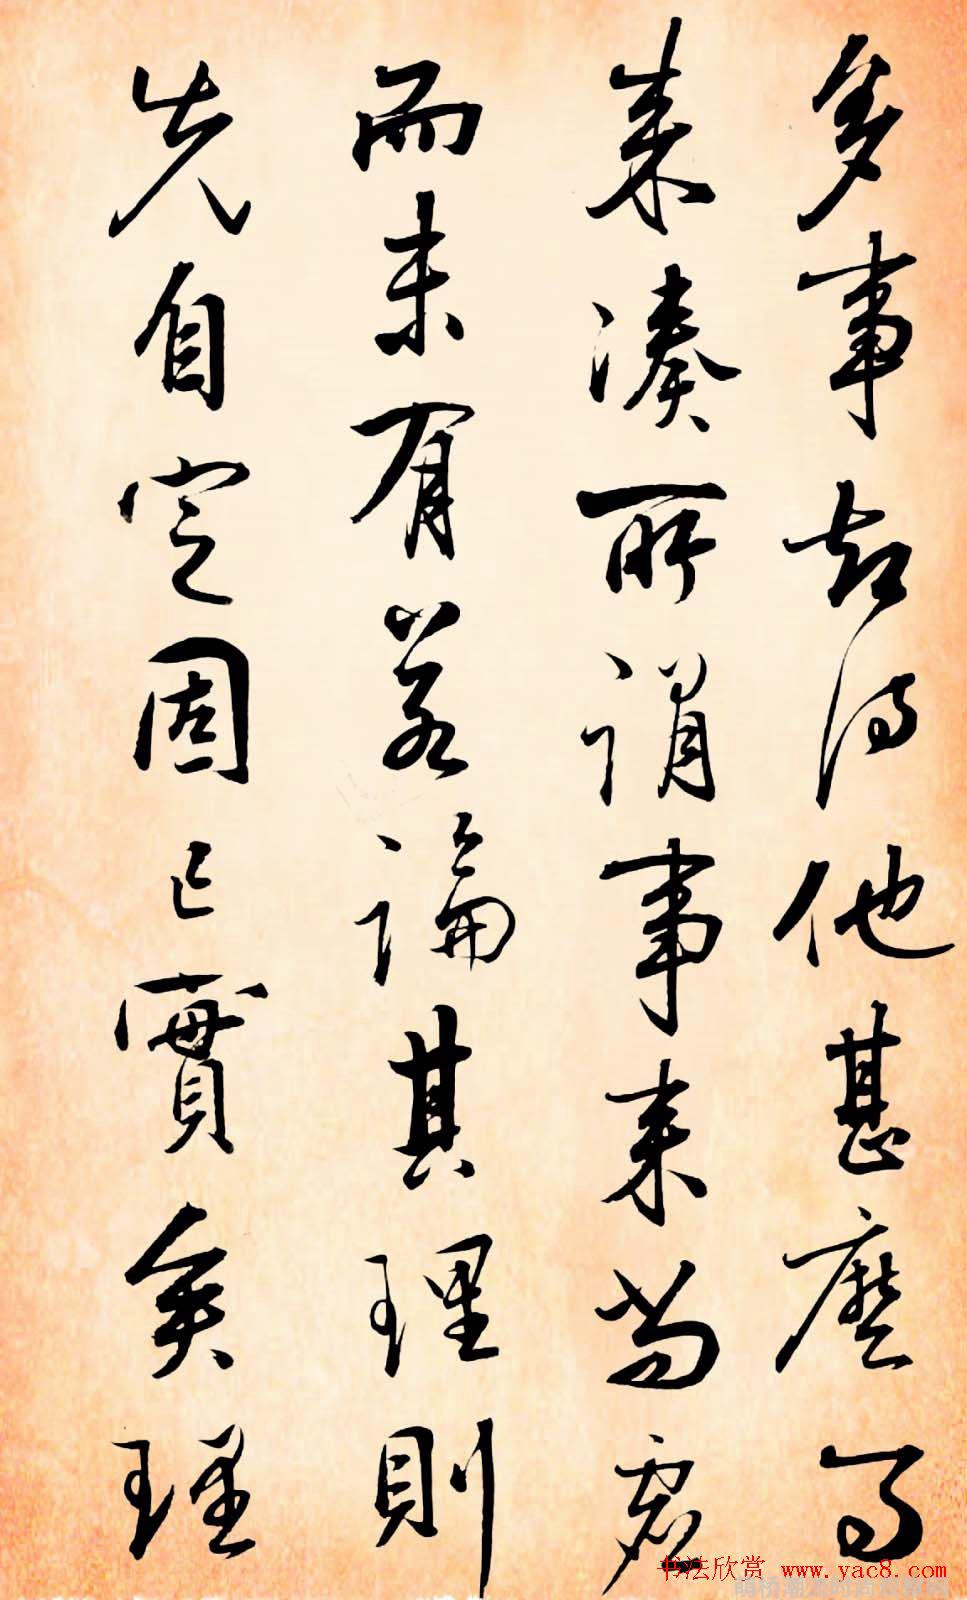 多事却待他甚麼事
来湊所謂事来尚虚
而未有若論其理則
先自定固已實矣理
书法欣赏 www.yac8.com